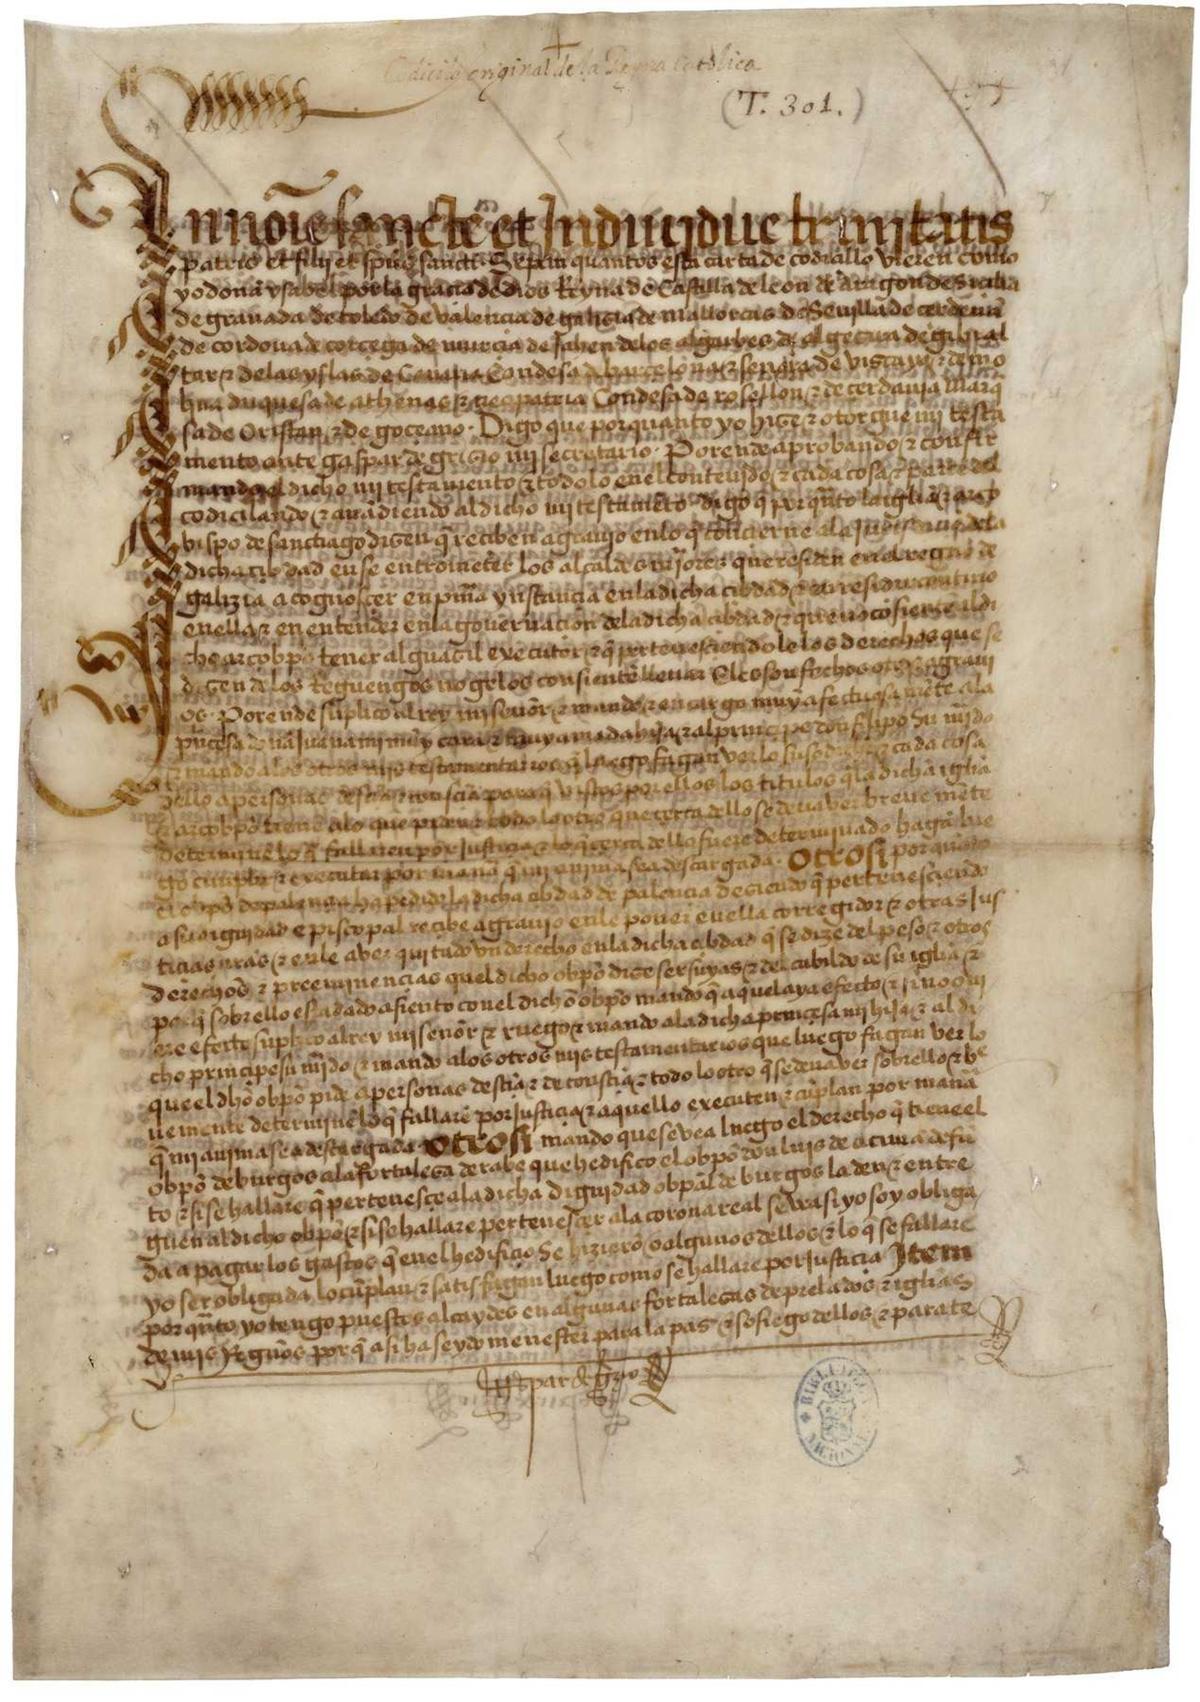 Codicilo original de la Reyna Catolica
(T. 301.)
In noīe sancte et Indiuidue trinitatis
patris et filij et spūs sancti. Sepan quantos esta carta de codicillo vieren como
yo doña ysabel por la gracia de dios Reyna de Castilla de leon de aragon de sicilia
de granada de toledo de valencia de galisia de mallorcas de Seuilla de cerdeña
de cordoua de corcega de murcia de Jahen delos algarbes de algezira de gibral
tar & delas yslas de Canaria Condesa de barcelona & señora de viscaya & de mo
lina duquesa de athenas & neopatria Condesa de rosellon & de cerdania Marq̄
sa de Oristan & de goceano. Digo que por quanto yo hize & otorgue mi testa
mento ante gaspar de grizio mi secretario. Por ende aprobando & confir
mando el dicho mi testamento & todo lo en el contenido & cada cosa & parte del
codicilando & annadiendo al dicho mi testamēto digo q̄ por q̄nto la iglīa & arço
vispo de sanctiago dizen q̄ reciben agrauio en lo q̄ concierne a la Jurisdicion dela
dicha cibdad en se entrometer los alcaldes mayores que residen en el regno de
galizia a cognoscer en prīa ynstancia en la dicha cibdad & en residir contino
en ella & en entender en la gouernacion dela dicha cibdad & que no cōsienten al di
cho arçobpō tener alguazil executor & q̄ pertenesciendo le los derechos que se
dizen de los Reguengos no ge los consienten lleuar El &so son fechos otros agraui
os. Por ende suplico al rey mi señor & mando & encargo muy afectuosamēte a la
princesa doña Juana mi muy cara & muy amada hija & al principe don filipo su mīdo
& mando a los otros mis testamentarios q̄ luego fagan ver lo susodicho & cada cosa
dello a personas de sciā & cōsciā para q̄ vistos por ellos los titulos q̄ la dicha iglīa
& arçobpō tiene a lo que piden & todo lo otro que cerca dello se deua ver breue mēte
determinē lo q̄ fallaren por justicia & lo q̄ cerca dello fuere determinado hagā lue
go cūplir & executar por manā q̄ mi anima sea descargada. Otrosi por quāto
el obpō de palencia ha pedido la dicha cibdad de palencia deziendo q̄ pertenesciendo
a su dignidad episcopal recibe agrauio en le poner en ella corregidor & otras Jus
ticias nrās & en le aver quitado vn derecho en la dicha cibdad q̄ se dize del peso & otros
derechos & preeminencias quel dicho obpō dize ser suyas & del cabildo de su iglīa &
por q̄ sobre ello esta dado asiento con el dicho obpō mando q̄ aquel aya efecto & si no oui
ere efecto suplico al rey mi señor & ruego & mando a la dicha princesa mi hija & al di
cho principe su mīdo & mando a los otros mis testamentarios que luego fagan ver lo
que el dhō obpō pide a personas de sciā & de consciā & todo lo otro q̄ se deua ver sobrello & bre
uemente determinē lo q̄ fallarē por justicia & aquello executen & cūplan por manā
q̄ mi anima sea descargada Otrosi mando que se vea luego el derecho q̄ tiene el
obpō de burgos a la fortaleza de rabe que hedifico el obpō don luis de acuña defū
to & si se hallare q̄ pertenesce a la dicha dignidad obpāl de burgos la den & entre
guen al dicho obpō & si se hallare pertenescer a la corona real se vea si yo soy obliga
da a pagar los gastos q̄ en el hedificio se hizierō o algunos dellos & lo q̄ se fallare
yo ser obligada lo cūplan & satisfagan luego como se hallare por Justicia Item
por q̄nto yo tengo puestos alcaydes en algunas fortalezas de prelados & iglīas
de mis Regnos por q̄ asi ha seydo menester para la paz & sosiego dellos & para te
Gaspar de grizio
BIBLIOTECA NACIONAL